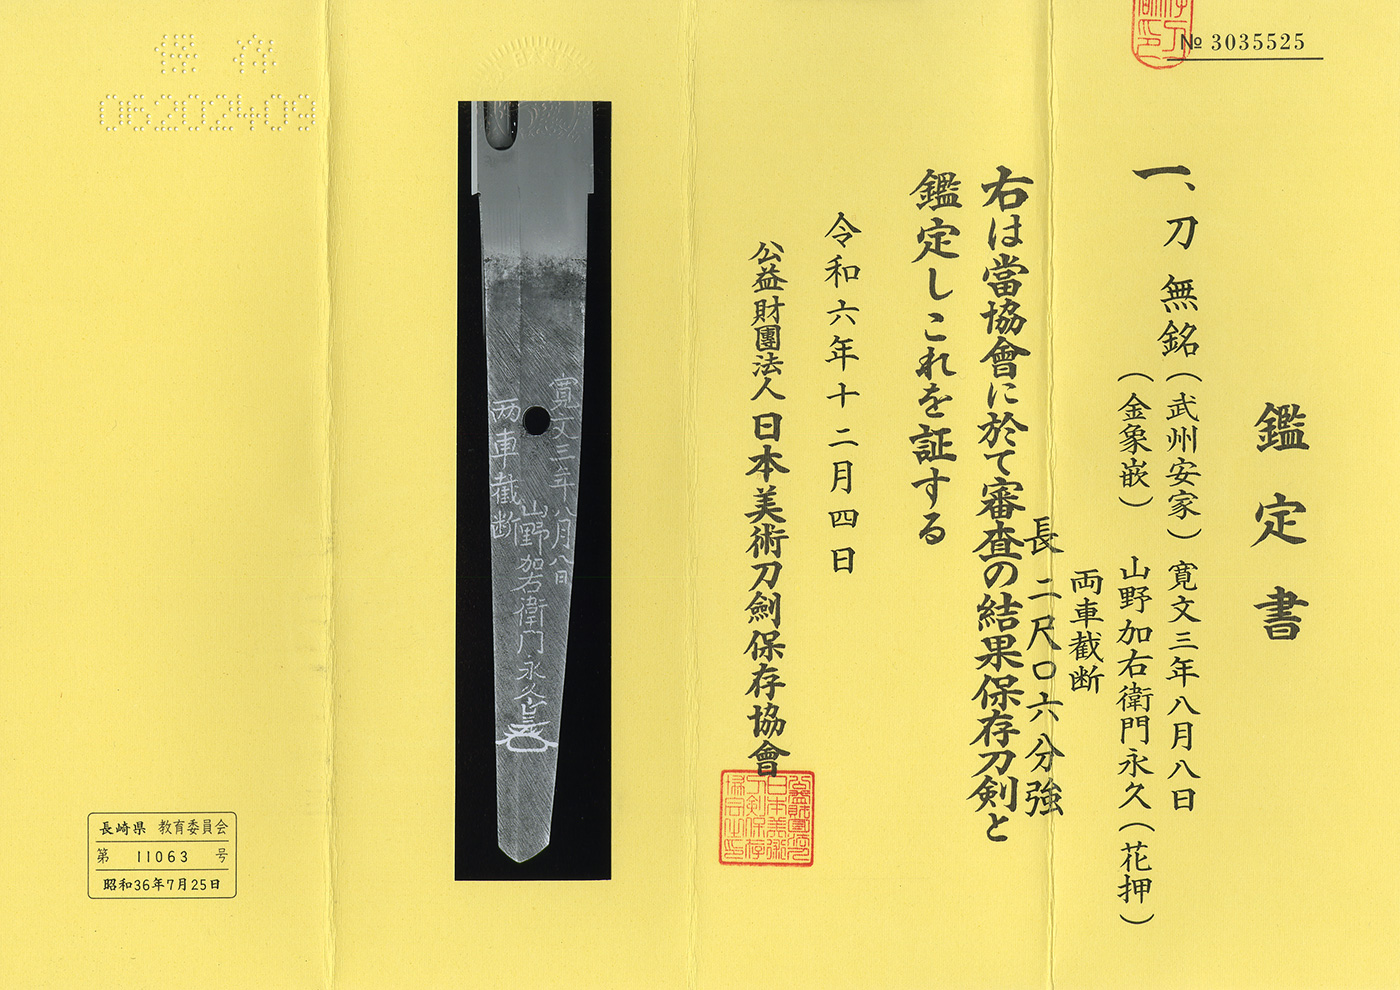 № 3035525
鑑定書
一、刀 無銘(武州安家) 寛文三年八月八日
(金象嵌) 山野加右衛門永久(花押)
両車截断
長二尺〇六分強
右は當協會に於て審査の結果保存刀剣と
鑑定しこれを証する
令和六年十二月四日
公益財團法人日本美術刀劍保存協會
寛文三年八月八日
山野加右衛門永久
両車截断
保存
06202409
長崎県 教育委員会
第 11063 号
昭和36年7月25日